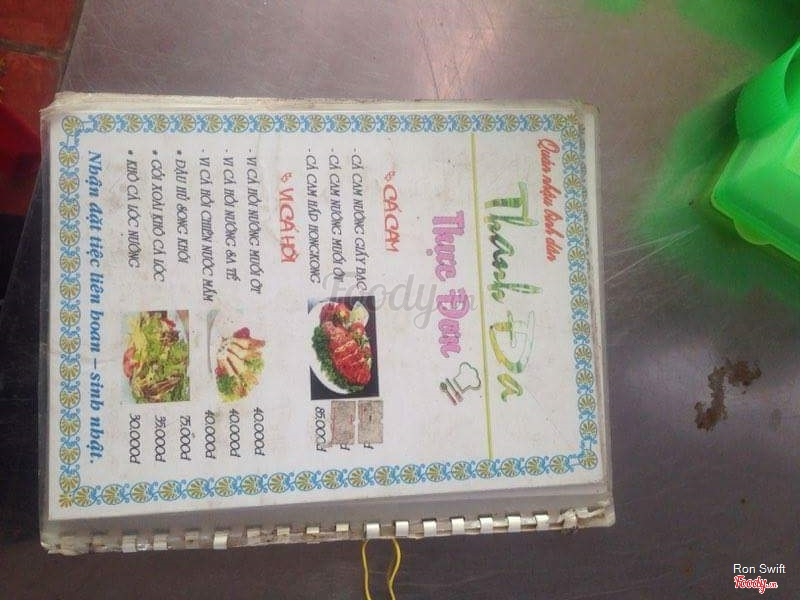 Quán nhậu bình dân
Thanh Đa
Thực Đơn
CÁ CAM
- CÁ CAM NƯỚNG GIẤY BẠC
- CÁ CAM NƯỚNG MUỐI ỚT
- CÁ CAM HẤP HONGKONG 85.000đ
VI CÁ HỒI
- VI CÁ HỒI NƯỚNG MUỐI ỚT 40.000đ
- VI CÁ HỒI NƯỚNG SA TẾ 40.000đ
- VI CÁ HỒI CHIÊN NƯỚC MẮM 40.000đ
* ĐẬU HỦ SONG KHÔI 75.000đ
* GỎI XOÀI KHÔ CÁ LÓC 55.000đ
* KHÔ CÁ LÓC NƯỚNG 50.000đ
Nhận đặt tiệc liên hoan – sinh nhật.
Foody.vn
Ron Swift
Foody.vn